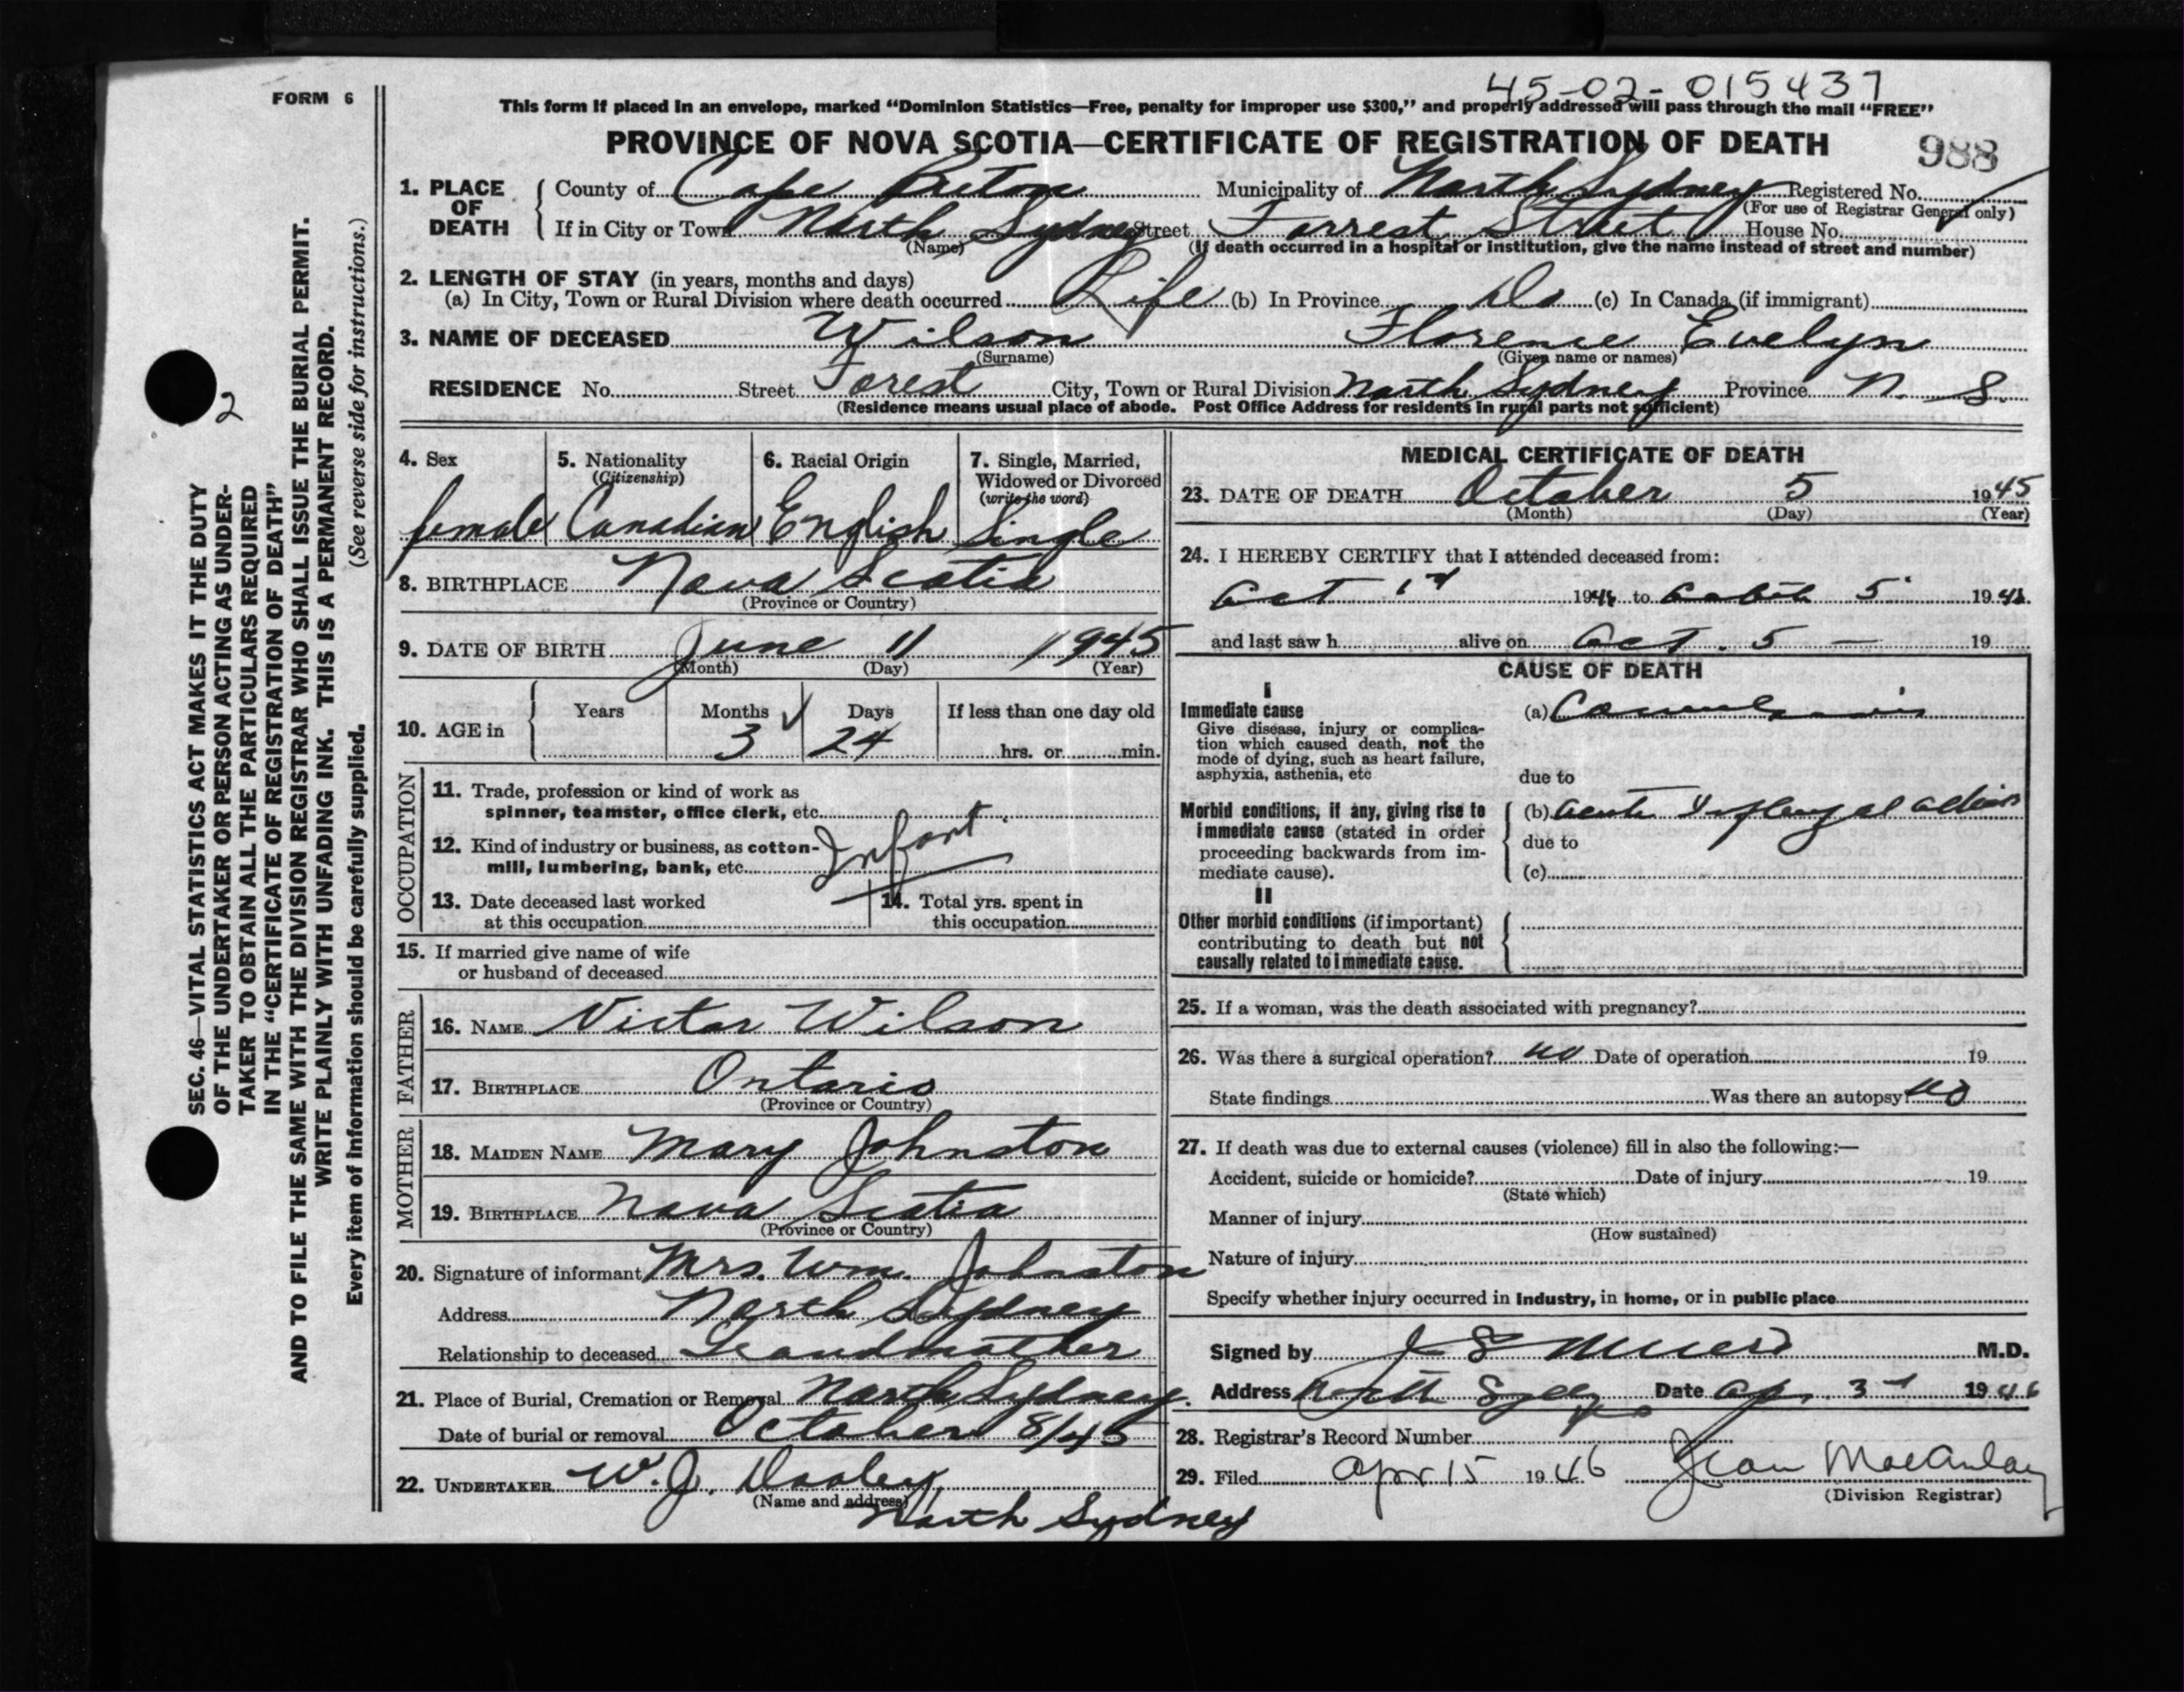 45-02-015437
FORM 6
This form if placed in an envelope, marked “Dominion Statistics—Free, penalty for improper use $300,” and properly addressed will pass through the mail “FREE”
PROVINCE OF NOVA SCOTIA—CERTIFICATE OF REGISTRATION OF DEATH 988
1. PLACE OF DEATH County of Cape Breton Municipality of North Sydney Registered No.
(For use of Registrar General only)
If in City or Town North Sydney Street Forrest Street House No.
(Name) (If death occurred in a hospital or institution, give the name instead of street and number)
2. LENGTH OF STAY (in years, months and days)
(a) In City, Town or Rural Division where death occurred Life (b) In Province Do (c) In Canada (if immigrant)
3. NAME OF DECEASED Wilson Florence Evelyn
(Surname) (Given name or names)
RESIDENCE No. Street Forest City, Town or Rural Division North Sydney Province N. S.
(Residence means usual place of abode. Post Office Address for residents in rural parts not sufficient)
SEC. 46—VITAL STATISTICS ACT MAKES IT THE DUTY
OF THE UNDERTAKER OR PERSON ACTING AS UNDER-
TAKER TO OBTAIN ALL THE PARTICULARS REQUIRED
IN THE “CERTIFICATE OF REGISTRATION OF DEATH”
AND TO FILE THE SAME WITH THE DIVISION REGISTRAR WHO SHALL ISSUE THE BURIAL PERMIT.
WRITE PLAINLY WITH UNFADING INK. THIS IS A PERMANENT RECORD.
Every item of information should be carefully supplied. (See reverse side for instructions.)
2
4. Sex
female
5. Nationality
(Citizenship)
Canadian
6. Racial Origin
English
7. Single, Married,
Widowed or Divorced
(write the word)
Single
8. BIRTHPLACE Nova Scotia
(Province or Country)
9. DATE OF BIRTH June 11 1945
(Month) (Day) (Year)
10. AGE in Years Months Days If less than one day old
3 24 hrs. or min.
OCCUPATION
11. Trade, profession or kind of work as
spinner, teamster, office clerk, etc.
12. Kind of industry or business, as cotton-
mill, lumbering, bank, etc. Infant
13. Date deceased last worked
at this occupation
14. Total yrs. spent in
this occupation
15. If married give name of wife
or husband of deceased
FATHER
16. NAME Victor Wilson
17. BIRTHPLACE Ontario
(Province or Country)
MOTHER
18. MAIDEN NAME Mary Johnston
19. BIRTHPLACE Nova Scotia
(Province or Country)
20. Signature of informant Mrs. Wm. Johnston
Address North Sydney
Relationship to deceased Grandmother
21. Place of Burial, Cremation or Removal North Sydney.
Date of burial or removal October 8/45
22. UNDERTAKER W. J. Dooley,
(Name and address)
North Sydney
MEDICAL CERTIFICATE OF DEATH
23. DATE OF DEATH October 5 1945
(Month) (Day) (Year)
24. I HEREBY CERTIFY that I attended deceased from:
Oct 1st 19 to 5 19
and last saw h alive on Oct. 5 — 19
CAUSE OF DEATH
I
Immediate cause
Give disease, injury or complica-
tion which caused death, not the
mode of dying, such as heart failure,
asphyxia, asthenia, etc
(a) Convulsions
due to
Morbid conditions, if any, giving rise to
immediate cause (stated in order
proceeding backwards from im-
mediate cause).
(b) acute
due to
(c)
II
Other morbid conditions (if important)
contributing to death but not
causally related to immediate cause.
25. If a woman, was the death associated with pregnancy?
26. Was there a surgical operation? no Date of operation 19
State findings Was there an autopsy? no
27. If death was due to external causes (violence) fill in also the following:—
Accident, suicide or homicide? Date of injury 19
(State which)
Manner of injury
(How sustained)
Nature of injury
Specify whether injury occurred in industry, in home, or in public place
Signed by M.D.
Address North Sydney Date Apr. 3rd 1946
28. Registrar’s Record Number
29. Filed Apr 15 1946 Jean MacAulay
(Division Registrar)